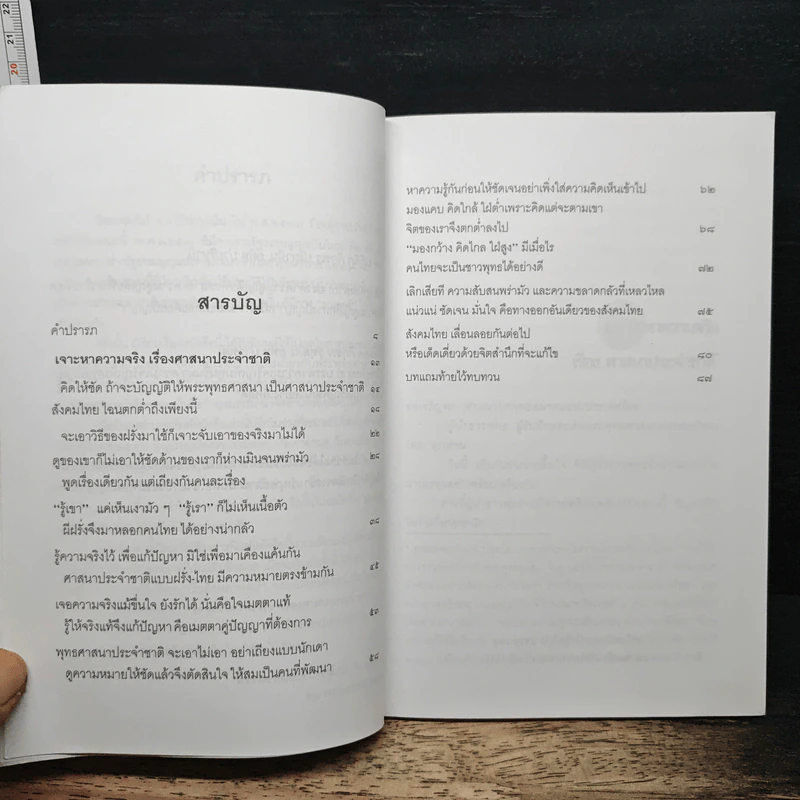 22
21
20
สารบัญ
คำปรารภ ๘
เจาะหาความจริง เรื่องศาสนาประจำชาติ ๑๓
คิดให้ชัด ถ้าจะบัญญัติให้พระพุทธศาสนา เป็นศาสนาประจำชาติ ๑๔
สังคมไทย ไฉนตกต่ำถึงเพียงนี้ ๑๘
จะเอาวิธีของฝรั่งมาใช้ก็เจาะจับเอาของจริงมาไม่ได้ ๒๒
ดูของเขาก็ไม่เอาให้ชัดด้านของเราก็ห่างเมินจนพร่ามัว ๒๘
พูดเรื่องเดียวกัน แต่เถียงกันคนละเรื่อง
“รู้เขา” แค่เห็นเงามัว ๆ “รู้เรา” ก็ไม่เห็นเนื้อตัว
ผีฝรั่งจึงมาหลอกคนไทย ได้อย่างน่ากลัว ๓๘
รู้ความจริงไว้ เพื่อแก้ปัญหา มิใช่เพื่อมาเคืองแค้นกัน
ศาสนาประจำชาติแบบฝรั่ง-ไทย มีความหมายตรงข้ามกัน ๔๕
เจอความจริงแม้ขื่นใจ ยังรักได้ นั่นคือใจเมตตาแท้
รู้ให้จริงแท้จึงแก้ปัญหา คือเมตตาคู่ปัญญาที่ต้องการ ๕๓
พุทธศาสนาประจำชาติ จะเอาไม่เอา อย่าเถียงแบบนักเดา
ดูความหมายให้ชัดแล้วจึงตัดสินใจ ให้สมเป็นคนที่พัฒนา ๕๘
หาความรู้กันก่อนให้ชัดเจนอย่าเพิ่งใส่ความคิดเห็นเข้าไป ๖๒
มองแคบ คิดใกล้ ใฝ่ต่ำเพราะคิดแต่จะตามเขา
จิตของเราจึงตกต่ำลงไป ๖๘
“มองกว้าง คิดไกล ใฝ่สูง” มีเมื่อไร
คนไทยจะเป็นชาวพุทธได้อย่างดี ๗๒
เลิกเสียที ความสับสนพร่ามัว และความขลาดกลัวที่เหลวไหล
แน่วแน่ ชัดเจน มั่นใจ คือทางออกอันเดียวของสังคมไทย ๗๕
สังคมไทย เลื่อนลอยกันต่อไป
หรือเด็ดเดี่ยวด้วยจิตสำนึกที่จะแก้ไข ๘๐
บทแถมท้ายไว้ทบทวน ๘๗